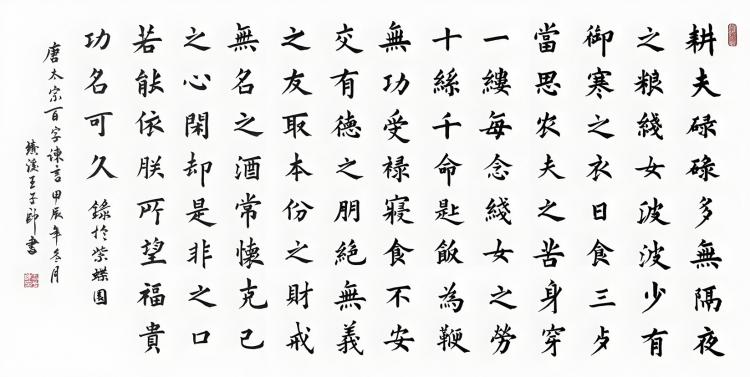 耕夫碌碌多無隔夜
之粮綫女波波少有
御寒之衣日食三歺
當思农夫之苦身穿
一縷每念綫女之勞
十絲千命匙飯為鞭
無功受禄寢食不安
交有德之朋絶無義
之友取本份之財戒
無名之酒常懷克己
之心閑却是非之口
若能依朕所望福貴
功名可久 錄於紫蝶園
唐太宗百字諫言甲辰年冬月
績溪王子師書